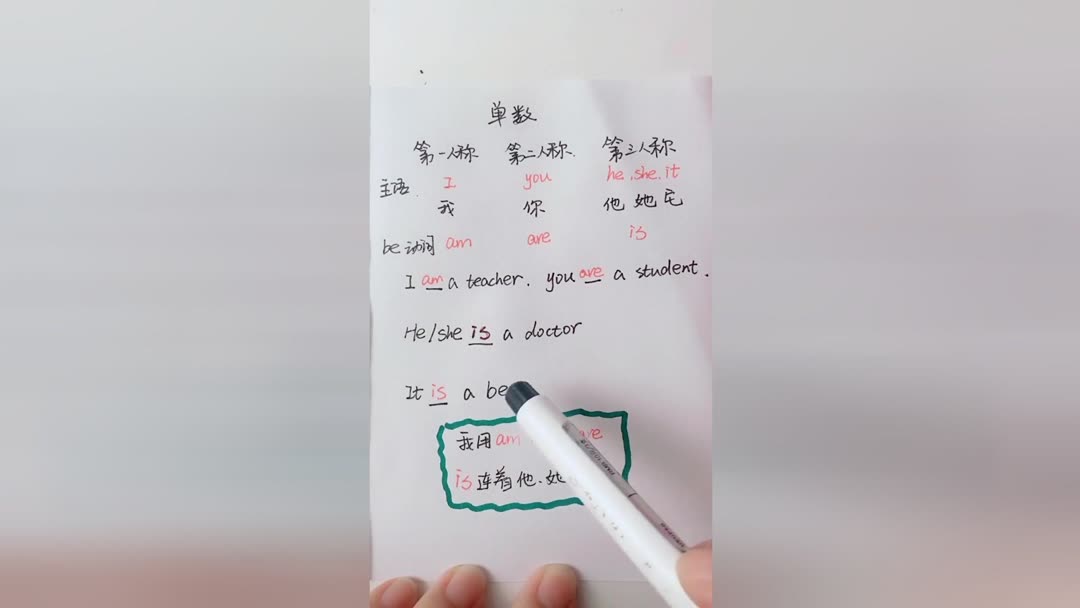 单数
第一人称 第二人称 第三人称
主语 I you he, she, it
我 你 他 她 它
be动词 am are is
I am a teacher. you are a student.
He/she is a doctor
It is a
我用am are
is连着他.她